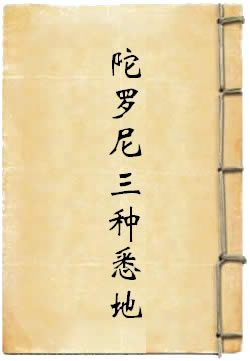 陀罗尼三种悉地